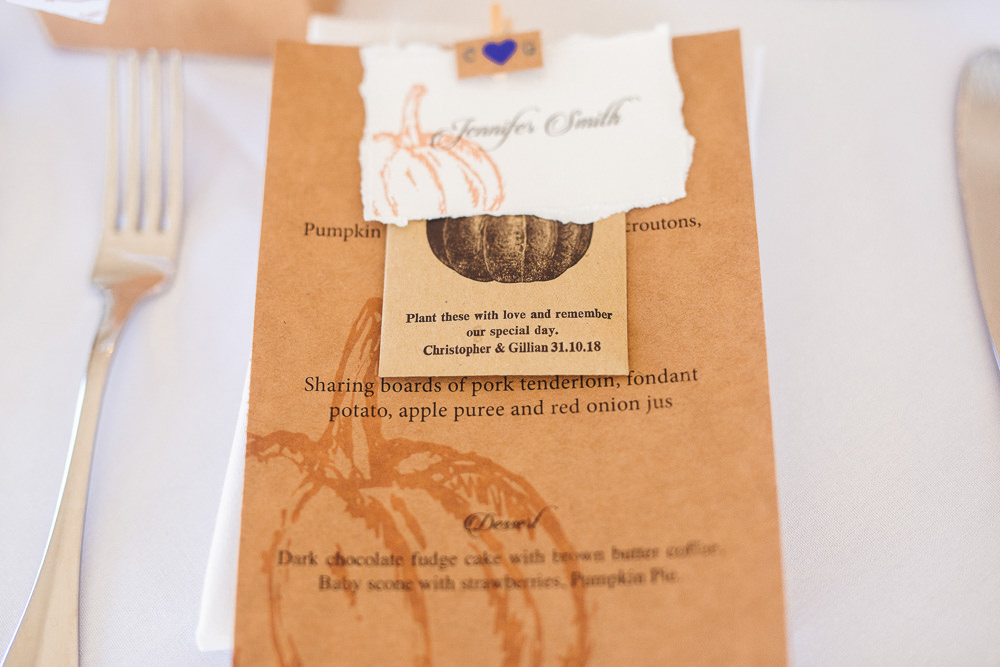 C G
Jennifer Smith
Pumpkin croutons,
Plant these with love and remember
our special day.
Christopher & Gillian 31.10.18
Sharing boards of pork tenderloin, fondant
potato, apple puree and red onion jus
Dessert
Dark chocolate fudge cake with brown butter
Baby scone with strawberries, Pumpkin Pie.